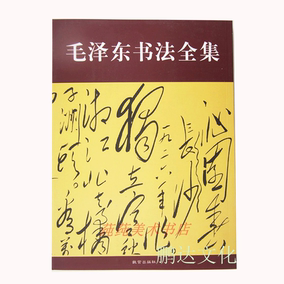 毛泽东书法全集
沁园春
长沙
独立寒秋
湘江北去橘
子洲头。看万
美术书店
鹏达文化